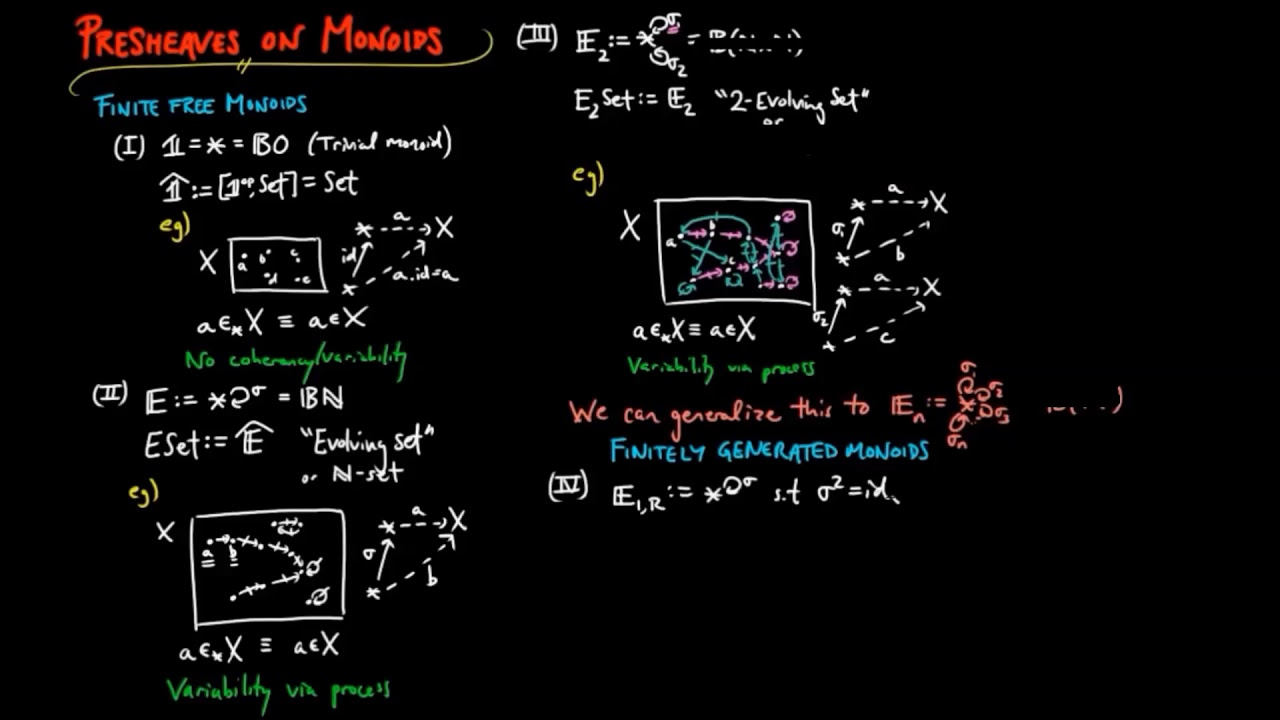 PRESHEAVES ON MONOIDS
FINITE FREE MONOIDS
(I) 𝟙 = * = 𝔹0 (Trivial monoid)
𝟙̂ := [𝟙ᵒᵖ, Set] = Set
eg)
X
a b c
d e
* a X
id a.id=a
*
a ∈* X ≡ a ∈ X
No coherency/variability
(II) 𝔼 := * σ = 𝔹ℕ
ESet := 𝔼̂ "Evolving set"
or ℕ-set
eg)
X
a b
* a X
σ b
*
a ∈* X ≡ a ∈ X
Variability via process
(III) 𝔼₂ := * σ₁ σ₂ =
E₂Set := 𝔼₂ "2-Evolving Set"
or
eg)
X
a b
c
* a X
σ₁ b
*
* a X
σ₂ c
*
a ∈* X ≡ a ∈ X
Variability via process
We can generalize this to 𝔼ₙ := * σ₁ σ₂ σ₃ σₙ
FINITELY GENERATED MONOIDS
(IV) 𝔼₁,R := * σ s.t σ² = id*